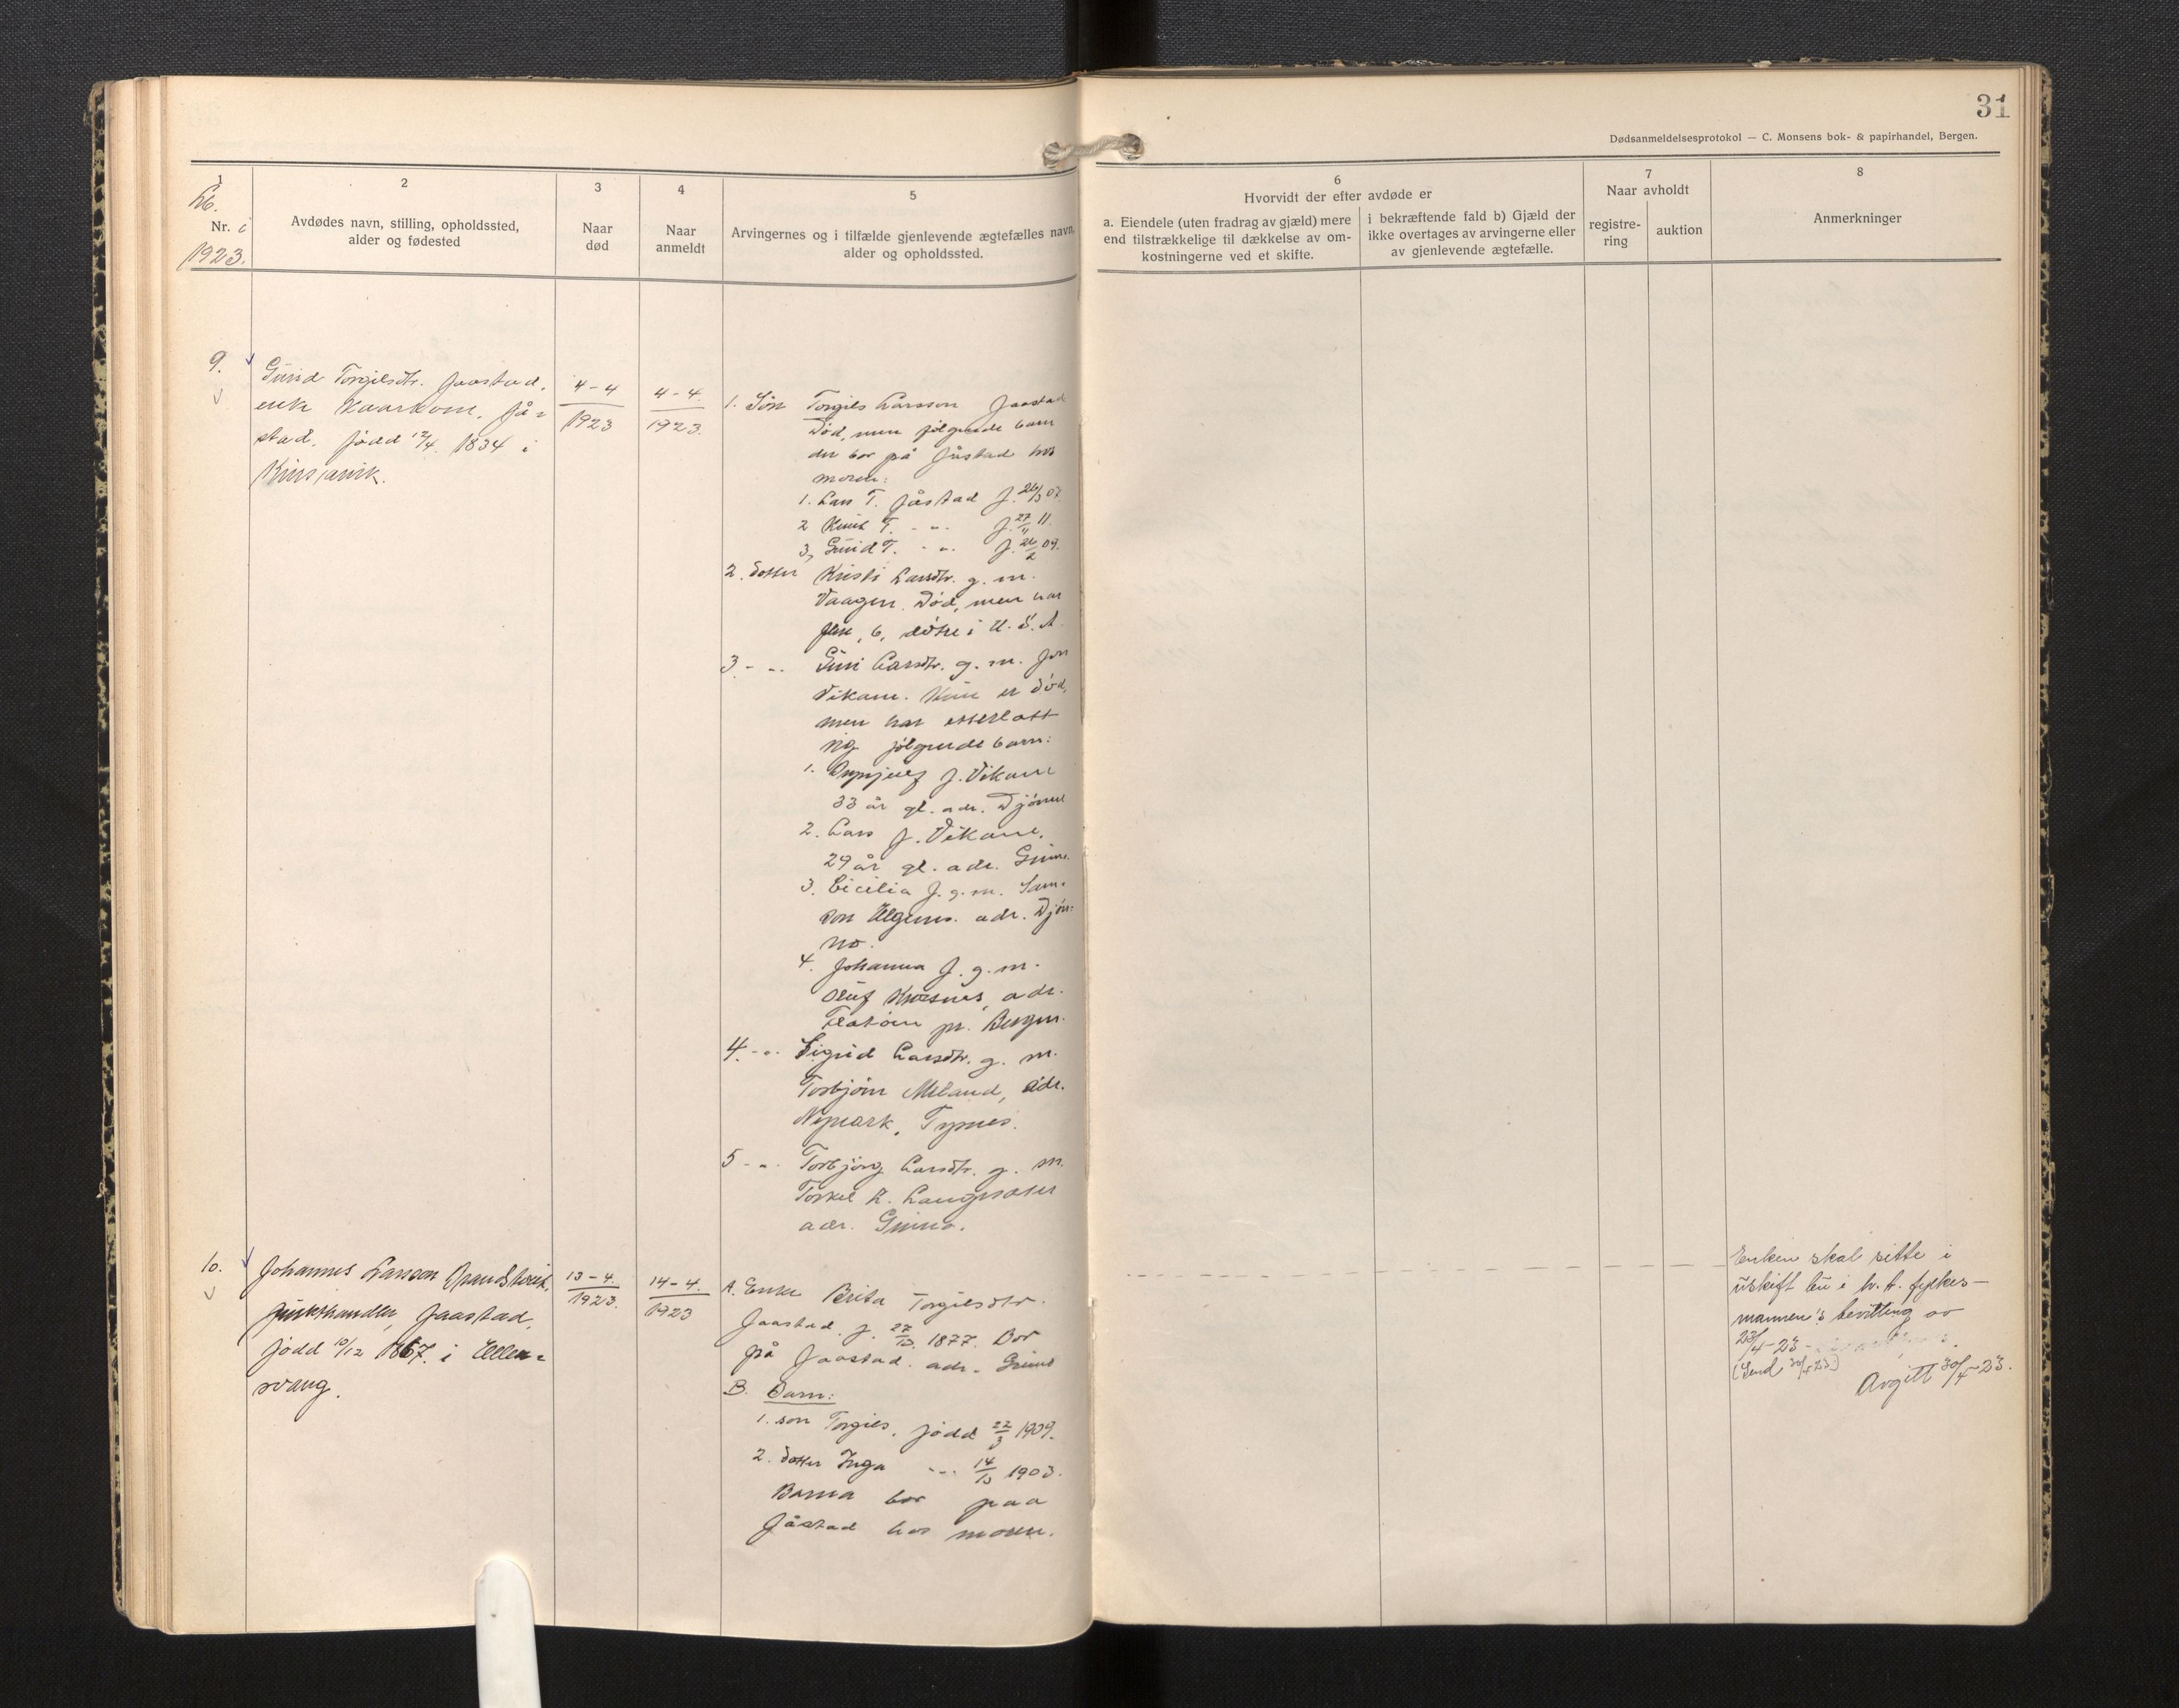 31
Dødsanmeldelsesprotokol — C. Monsens bok- & papirhandel, Bergen.
1
Nr. i
1923.
2
Avdødes navn, stilling, opholdssted,
alder og fødested
3
Naar
død
4
Naar
anmeldt
5
Arvingernes og i tilfælde gjenlevende ægtefælles navn,
alder og opholdssted.
6
Hvorvidt der efter avdøde er
a. Eiendele (uten fradrag av gjæld) mere
end tilstrækkelige til dækkelse av om-
kostningerne ved et skifte.
i bekræftende fald b) Gjæld der
ikke overtages av arvingerne eller
av gjenlevende ægtefælle.
7
Naar avholdt
registre-
ring
auktion
8
Anmerkninger
9.
Gurid Torgilsdtr. Jaastad,
enke, Jå=
stad. född 12/4. 1834 i
Kinsarvik.
4-4
1923
4-4.
1923.
1. Sön Torgils Larsson Jaastad
Död, men fölgende barn
der bor på Jåstad hos
moren:
1. Lars T. Jåstad f. 26/3 07.
2 Knut T. - „ - f. 27/11 11.
3, Gurid T. - „ - f. 26/2 09.
2. Dotter Kristi Larsdtr. g. m.
Vaagen. Död, men har
6, i U. S. A.
3. - „ - Guri Larsdtr. g. m. Jon
Vikane. Hun er död,
men har etterlatt
sig fölgende barn:
1. Brynjulf J. Vikane
33 år gl. adr. Djönne
2. Lars J. Vikane,
29 år gl. adr. Grimo.
3. Cicilia J. g. m. Sam=
son adr. Djön=
no.
4. Johanna J. g. m.
Oluf adr.
pr. Bergen.
4. - „ - Sigrid Larsdtr. g. m.
Torbjörn Meland, adr.
Nymark, Tysnes.
5 - „ - Torbjörg Larsdtr. g. m.
Torkel L. Langesæter
adr. Grimo.
10.
Johannes Larsson
Jaastad,
född 10/12 1867. i Ullen=
svang.
13-4.
1923.
14-4.
1923
A. Enke Brita Torgilsdtr.
Jaastad. f. 27/10. 1877. Bor
på Jaastad. adr. Grimo
B. Barn:
1. son Torgils, född 22/3 1909.
2. Dotter Inga - „ - 14/10 1903.
Barna bor paa
Jåstad hos moren.
Enken skal sitte i
uskift bu i h. t. fylkes-
mannen's bevilling av
23/4-23
(Send 30/4 23)
Avgitt 30/4-23.